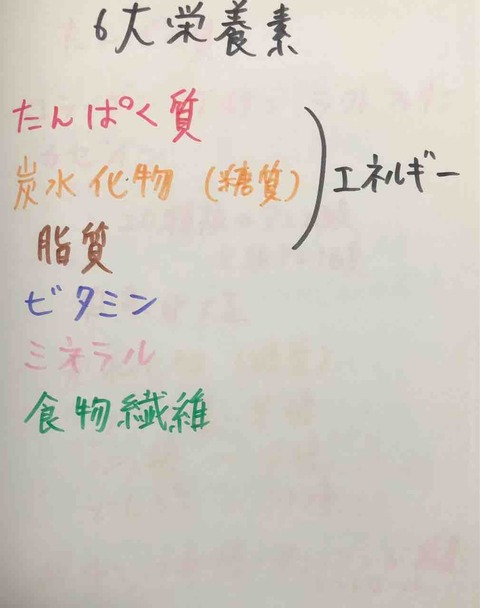 6大栄養素
たんぱく質
炭水化物 (糖質)
エネルギー
脂質
ビタミン
ミネラル
食物繊維